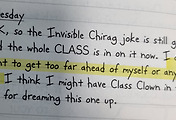 esday
K, so the Invisible Chirag joke is still g
d the whole CLASS is in on it now. I
nt to get too far ahead of myself or any
I think I might have Class Clown in
for dreaming this one up.